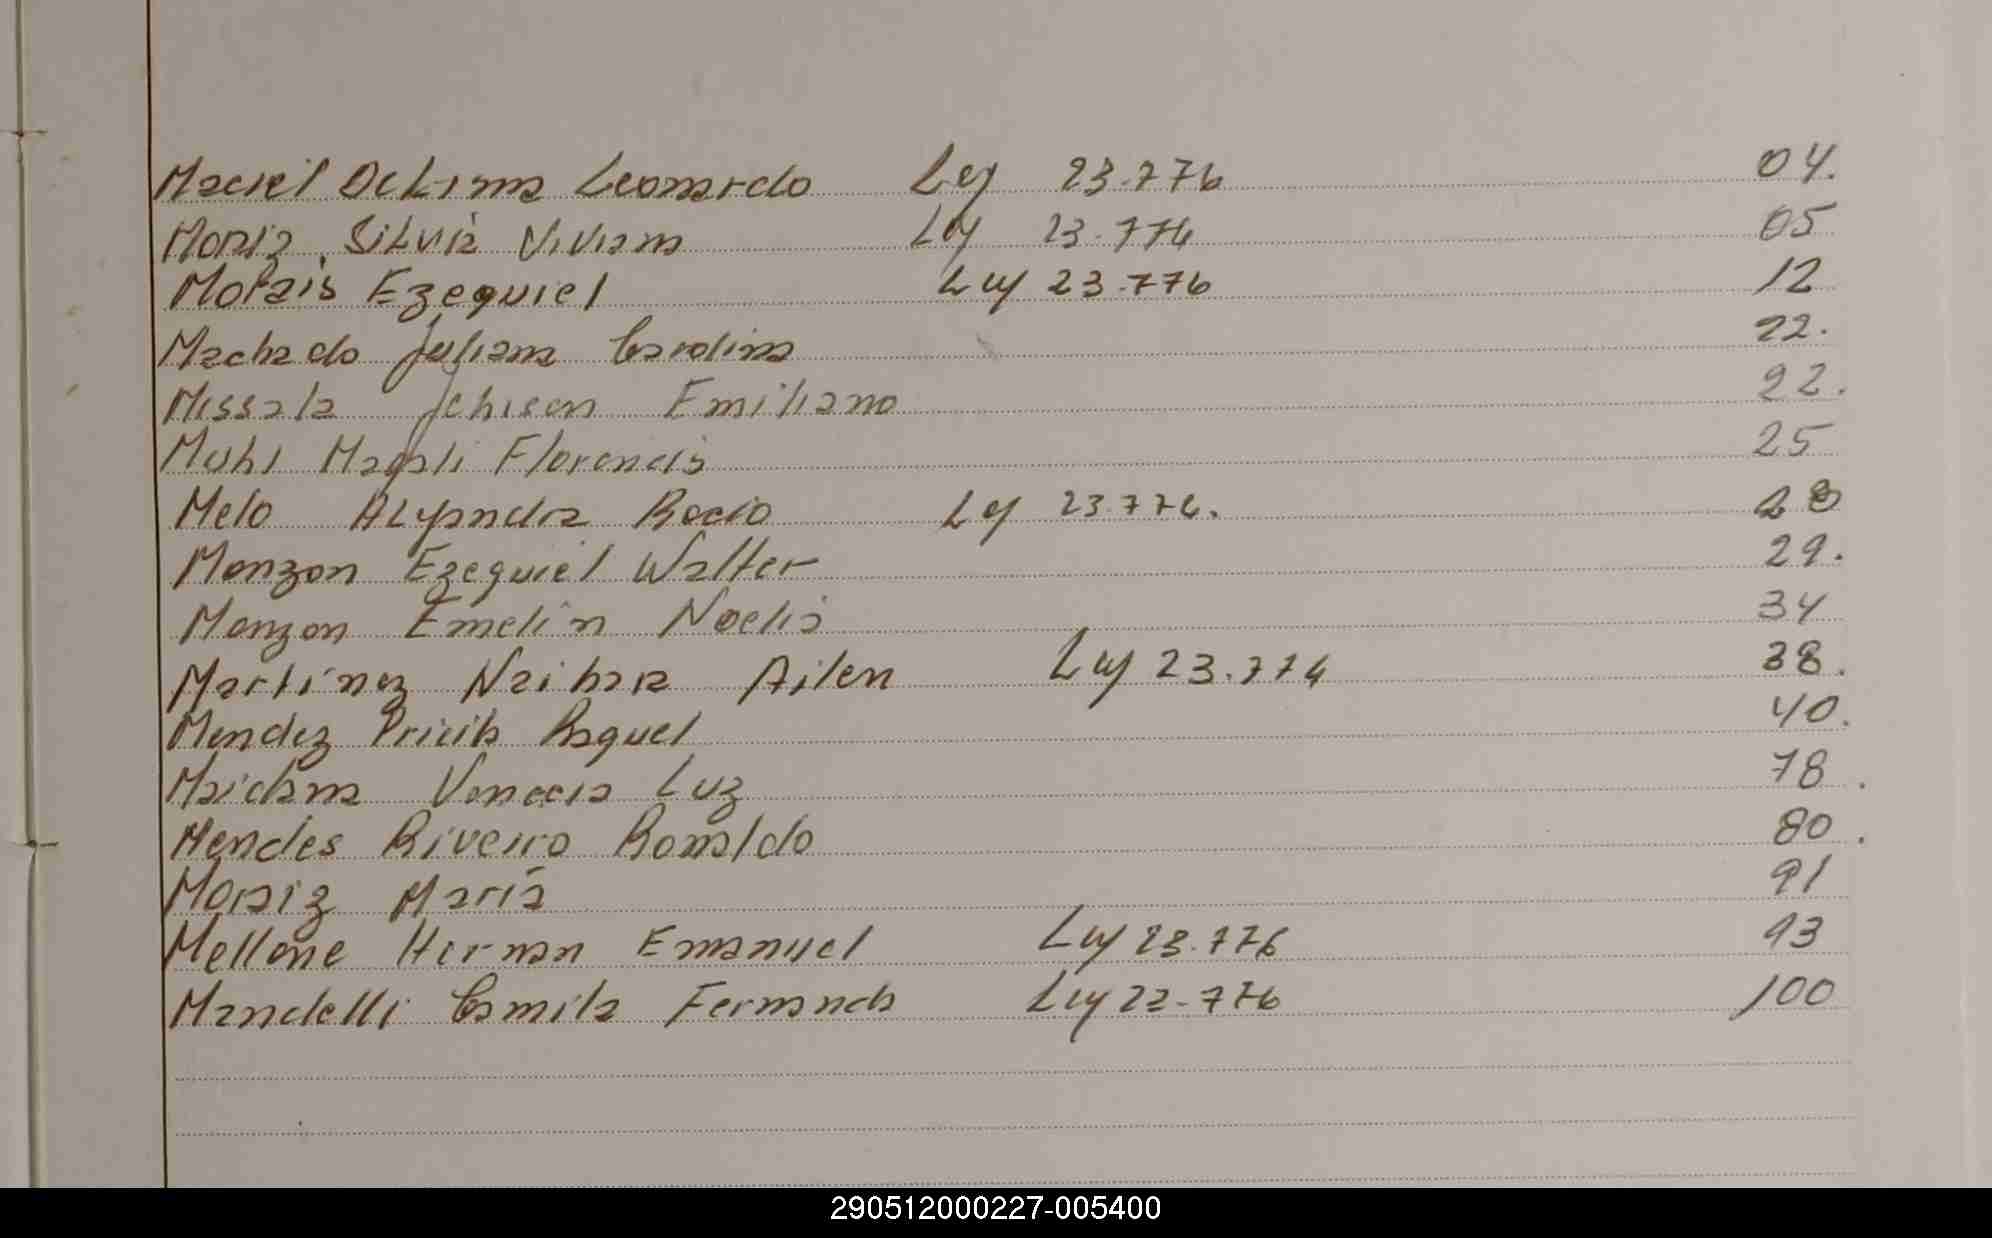 Maciel Delima Leonardo Ley 23.776 04.
Moraiz, Silvia Viviana Ley 23.776 05
Morais Ezequiel Ley 23.776 12
Machado Juliana Carolina 22.
Missala Jehison Emiliano 22.
Muhl Magali Florencia 25
Melo Alejandra Rocio Ley 23.776. 28
Monzon Ezequiel Walter 29.
Monzon Emelin Noelia 34
Martínez Naihara Ailen Ley 23.776 38.
Mendez Pricila Raquel 40.
Maidana Venecia Luz 78.
Mendes Riveiro Ronaldo 80.
Moraiz María 91
Mellone Hernan Emanuel Ley 23.776 93
Mandelli Camila Fernanda Ley 23.776 100
290512000227-005400